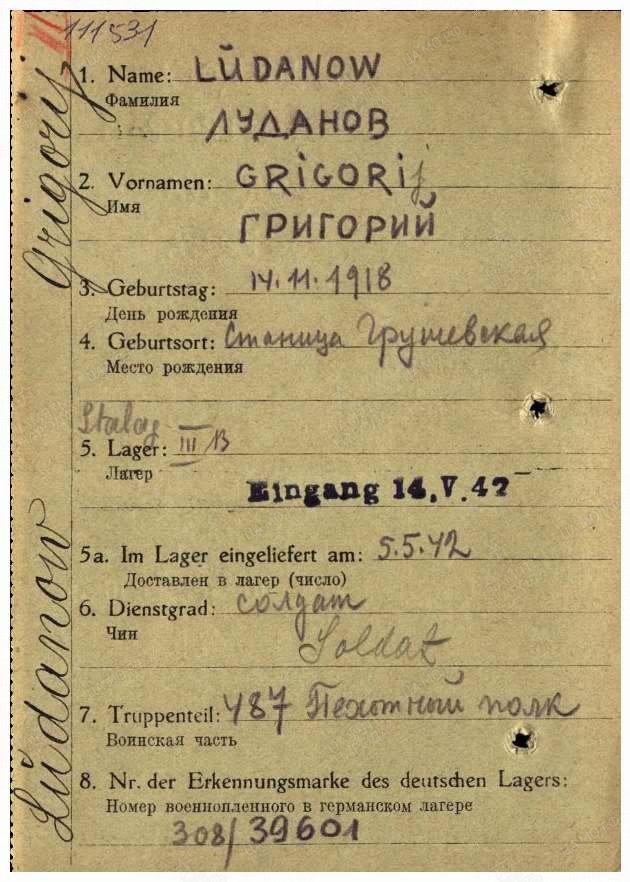 111531
1. Name: LŬDANOW
Фамилия
ЛУДАНОВ
2. Vornamen: GRIGORIj
Имя
ГРИГОРИЙ
3. Geburtstag: 14.11.1918
День рождения
4. Geburtsort: Станица Грушевская
Место рождения
Stalag
5. Lager: III B
Лагер
Eingang 14.V.42
5a. Im Lager eingeliefert am: 5.5.42
Доставлен в лагер (число)
6. Dienstgrad: солдат
Чин
Soldat
7. Truppenteil: 487 Пехотный полк
Воинская часть
8. Nr. der Erkennungsmarke des deutschen Lagers:
Номер военнопленного в германском лагере
308/39601
Lŭdanow Grigorij